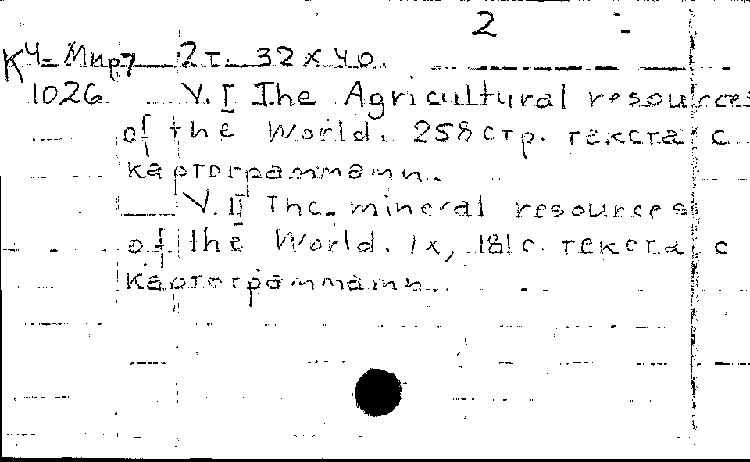 2
К4-Мир7 2т. 32х40.
1026 V. I The Agricultural resources
of the World. 258 стр. текста с
картограммами.
V. II The mineral resources
of the World. IX, 181 с. текста с
картограммами.